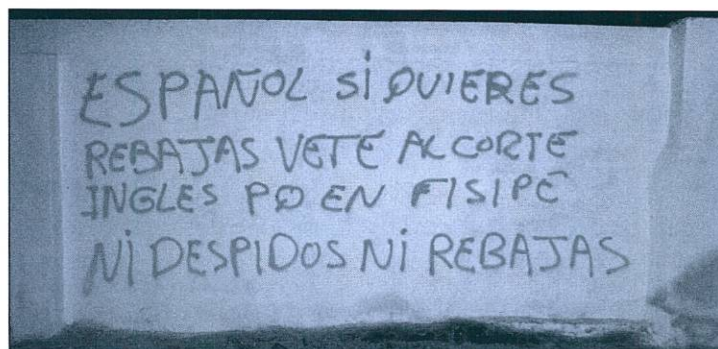 ESPAÑOL SI QUIERES
REBAJAS VETE AL CORTE
INGLES PQ EN FISIPE
NI DESPIDOS NI REBAJAS